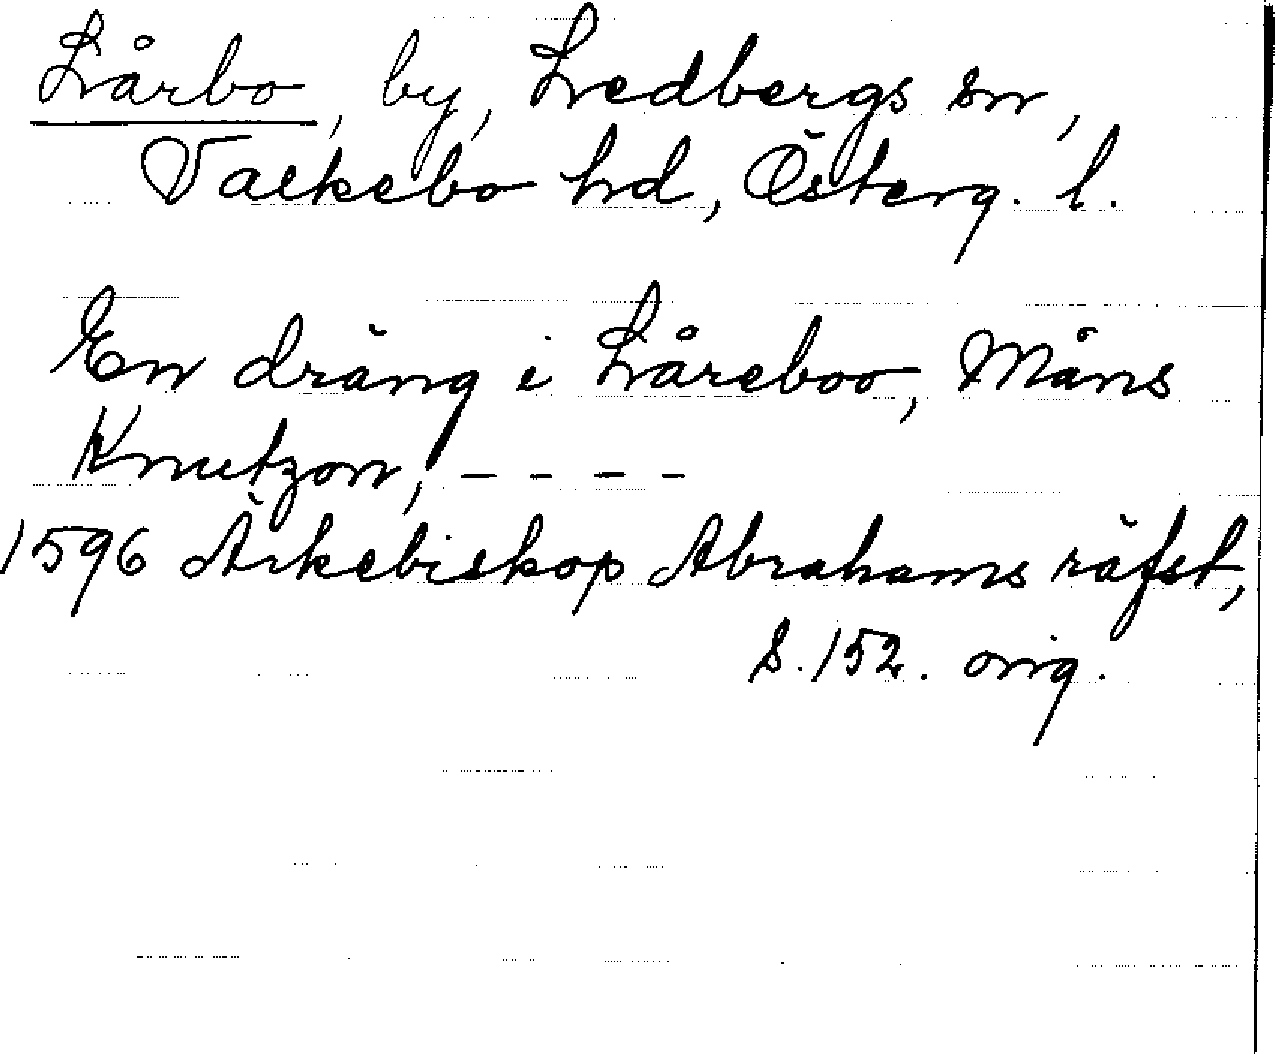 Lårbo, by, Ledbergs sn,
Valkebo hd, Österg. l.
En dräng i Låreboo, Måns
Knutzon, – – – –
1596 Ärkebiskop Abrahams räfst,
S. 152. orig.